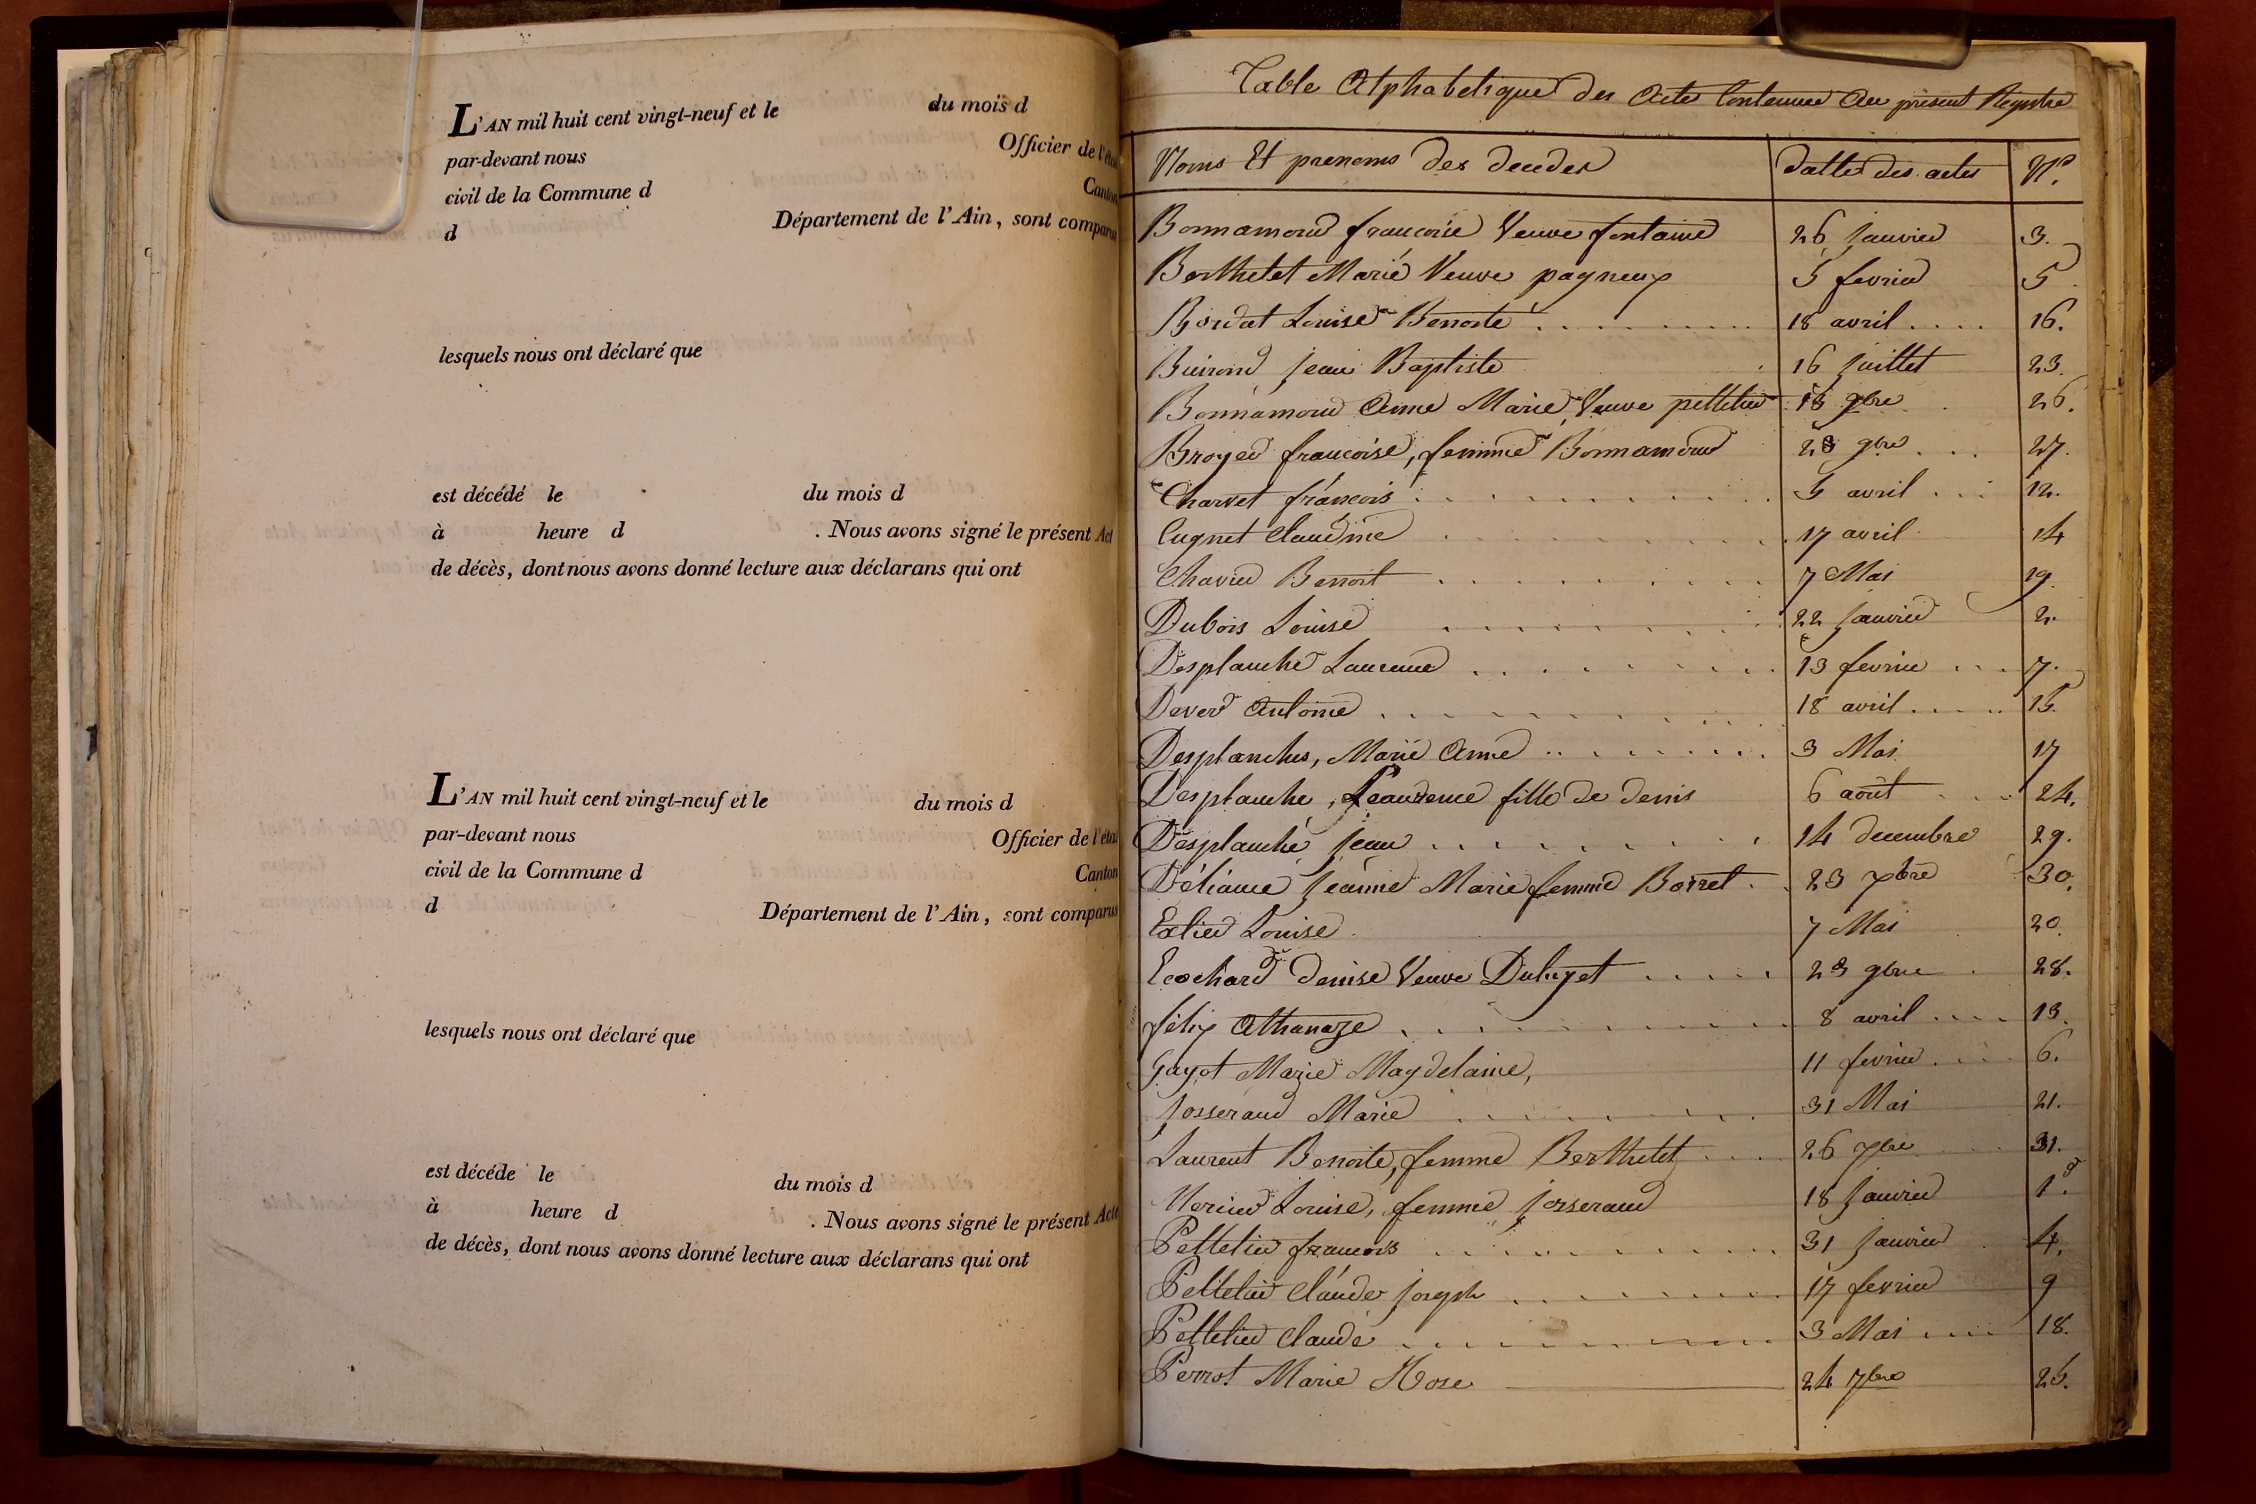 L'AN mil huit cent vingt-neuf et le du mois d
par-devant nous Officier de l'état
civil de la Commune d Canton
d Département de l'Ain, sont comparus
lesquels nous ont déclaré que
est décédé le du mois d
à heure d . Nous avons signé le présent Act
de décès, dont nous avons donné lecture aux déclarans qui ont
L'AN mil huit cent vingt-neuf et le du mois d
par-devant nous Officier de l'éta
civil de la Commune d Canton
d Département de l'Ain, sont comparus
lesquels nous ont déclaré que
est décéde le du mois d
à heure d . Nous avons signé le présent Acte
de décès, dont nous avons donné lecture aux déclarans qui ont
Table Alphabetique des Actes Contenues Au présent Registre
Noms Et prenoms des decedes datte des actes N°.
Bonnamour francoise Veuve fontaine 26 janvier 3.
Berthelet Marie Veuve pagneux 5 fevrier 5
Bordat Louise Benoite 18 avril 16.
Buirond jean Baptiste 16 juillet 23.
Bonnamour Anne Marie Veuve pelletier 9bre 26.
Broyer francoise, femme Bonnamour 28 9bre 27.
Charvet francois 5 avril 12.
Cugnet Claudine 17 avril 14
Chavier Benoit 7 Mai 19.
Dubois Louise 22 janvier 2.
Desplanche Laurence 13 fevrier 7.
Dever Antoine 18 avril 15.
Desplanches, Marie Anne 3 Mai 17
Desplanche, fille de denis 6 août 24.
Desplanche jean 14 decembre 29.
Déliance jeanne Marie femme Borret 23 xbre 30.
Exlier Louise 7 Mai 20.
Ecochard denise Veuve Duluyet 28 9bre 28.
félix Athanaze 8 avril 13.
Gayot Marie Magdelaine, 11 fevrier 6.
josserand Marie 31 Mai 21.
Laurent Benoite, femme Berthelet 26 xbre 31.
Mercier Louise, femme josserand 18 janvier 1er.
Pelletier francois 31 janvier 4.
Pelletier Claude joseph 17 fevrier 9
Pelletier Claude 3 Mai 18.
Perrot Marie Rose 24 7bre 25.